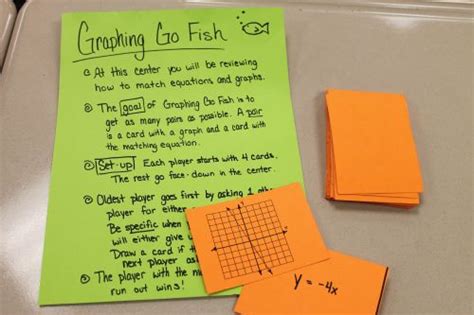 Graphing Go Fish
At this center you will be reviewing
how to match equations and graphs.
The goal of Graphing Go Fish is to
get as many pairs as possible. A pair
is a card with a graph and a card with
the matching equation.
Set-up Each player starts with 4 cards.
The rest go face-down in the center.
Oldest player goes first by asking 1
player for either
Be specific when
will either give
Draw a card if
next player
The player with the
run out wins!
y = -4x